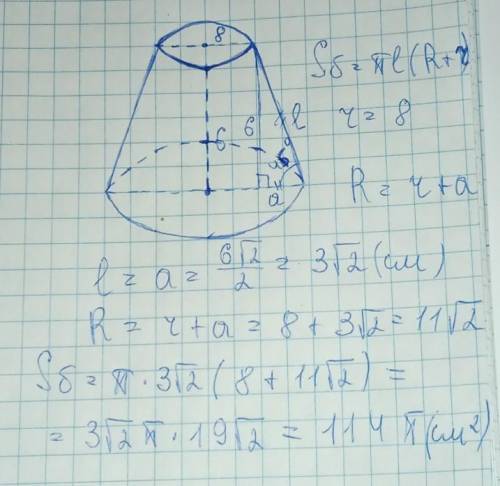 8
Sб = πl(R+r)
6
6
l
r = 8
a
R = r + a
l = a = 6√2/2 = 3√2 (см)
R = r + a = 8 + 3√2 = 11√2
Sб = π · 3√2 (8 + 11√2) =
= 3√2 π · 19√2 = 114 π (см²)